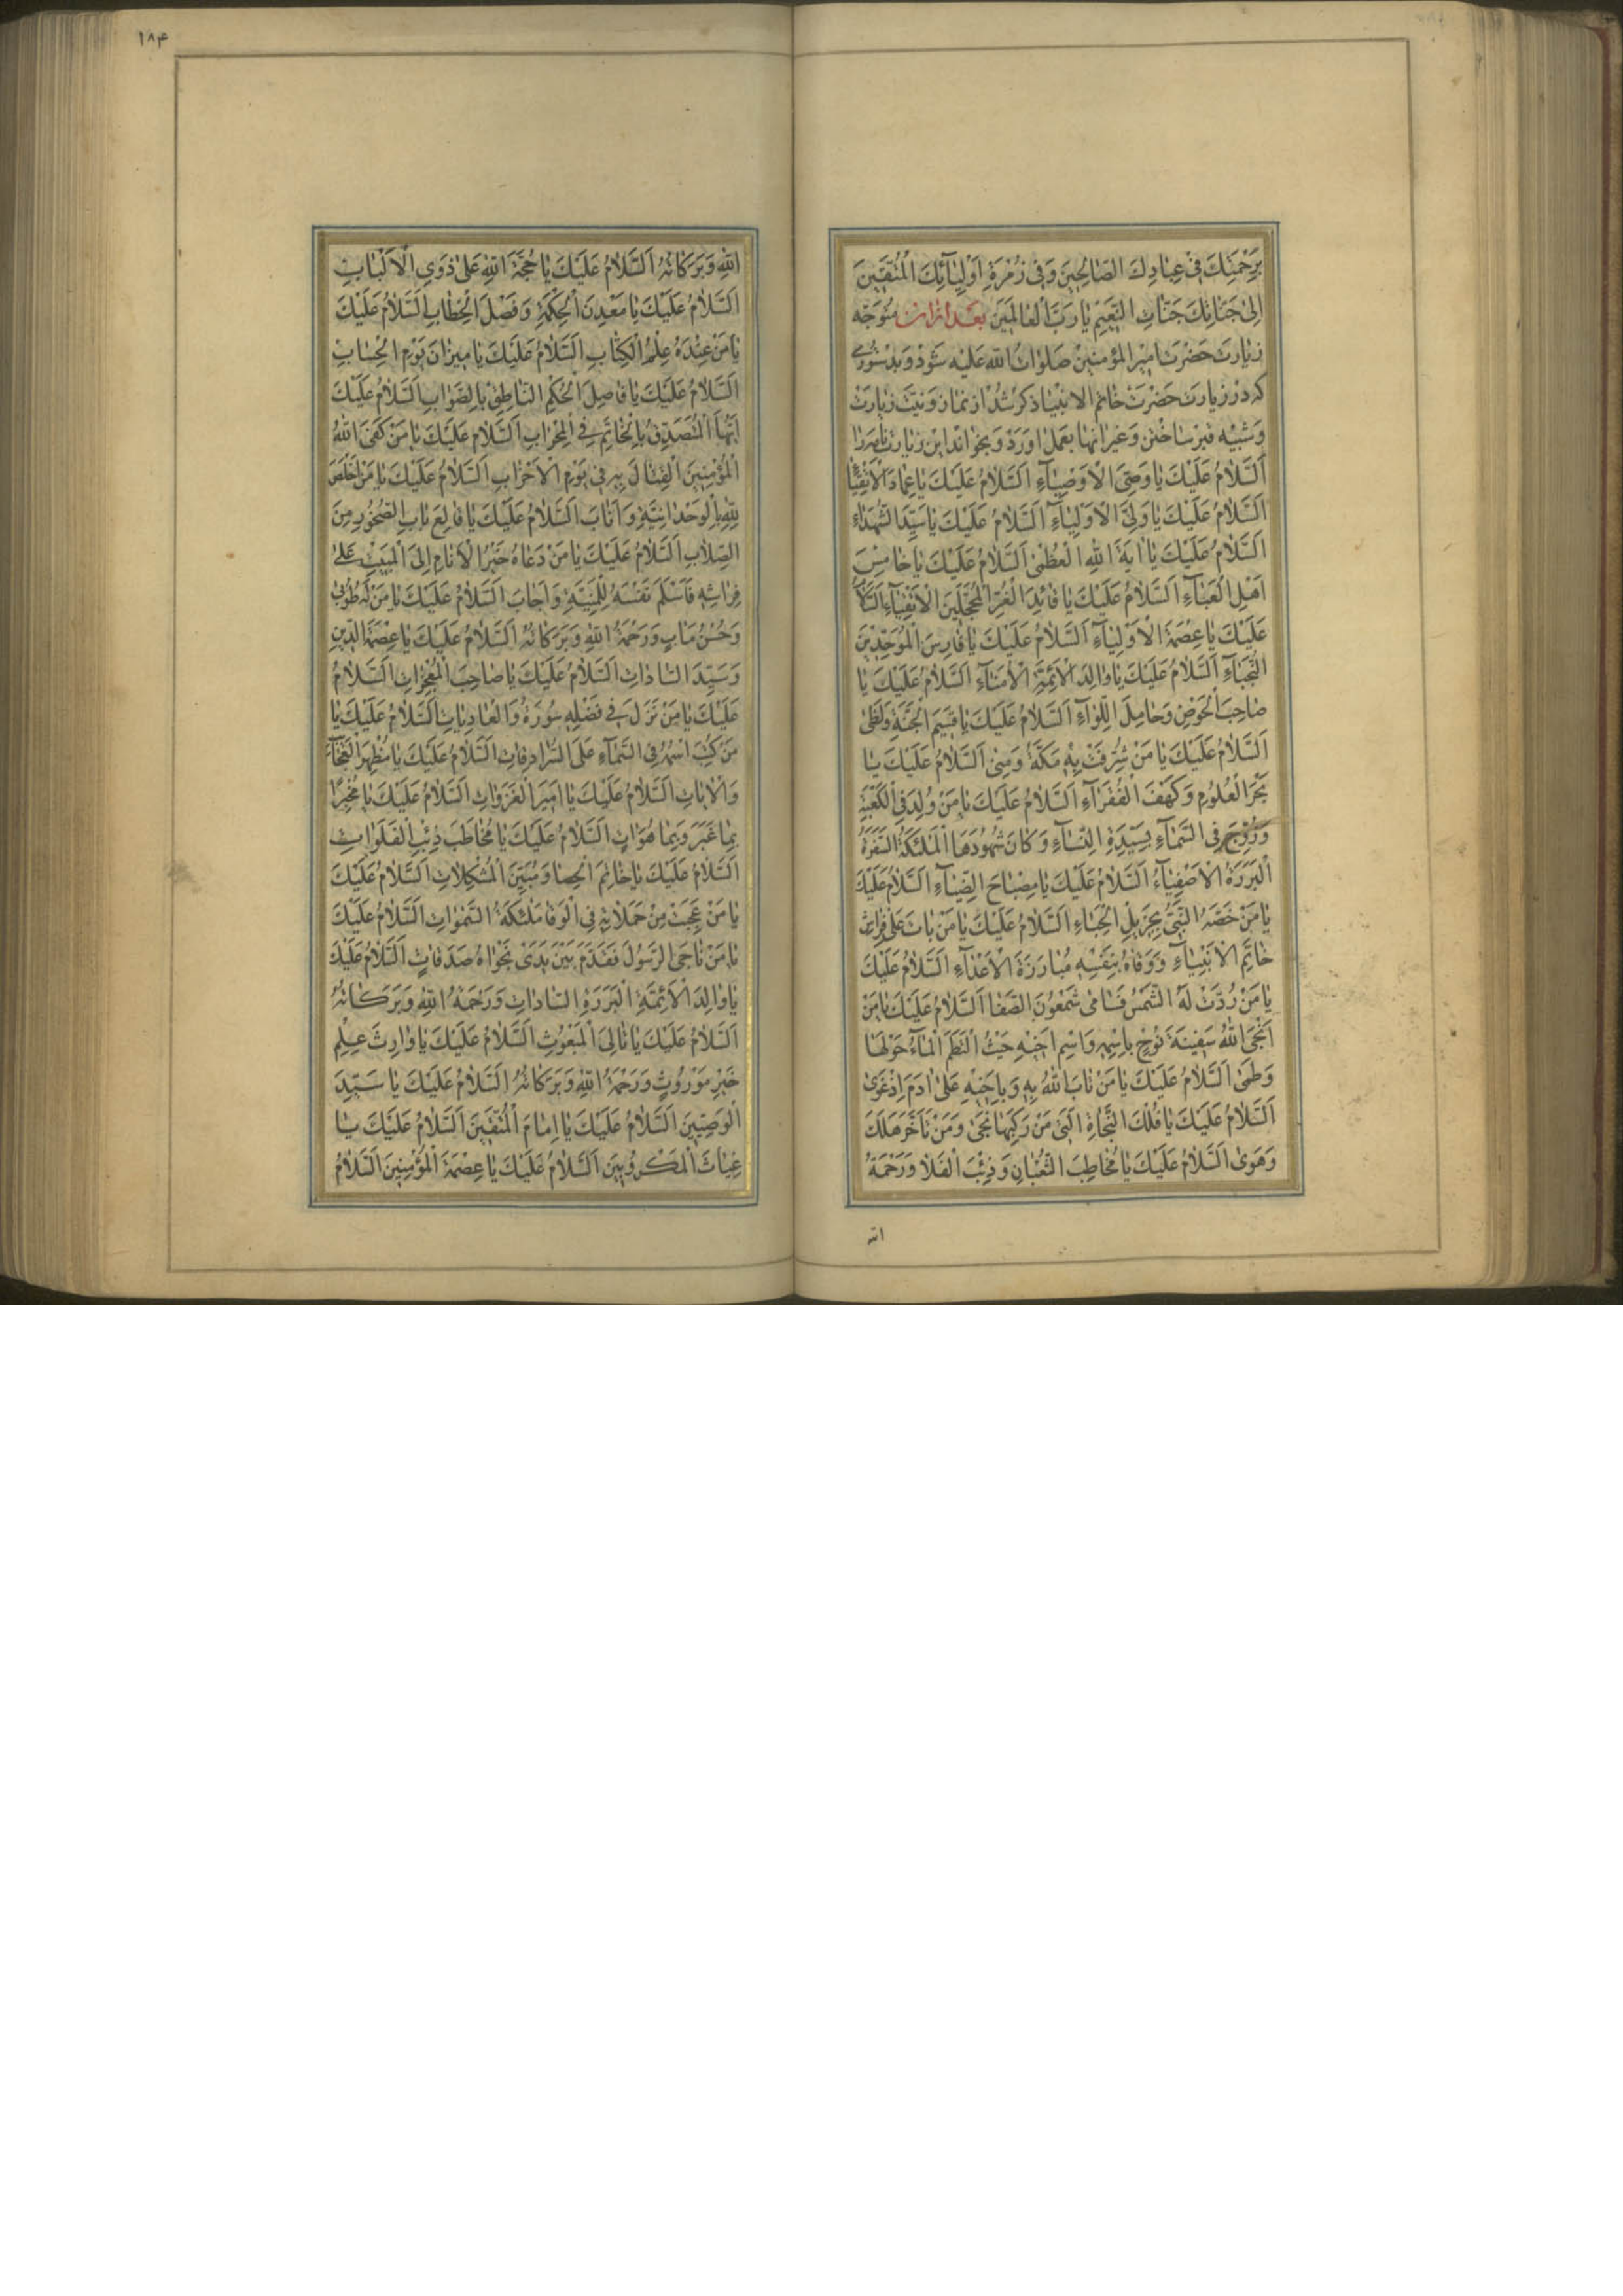 بِرَحْمَتِكَ فِي عِبَادِكَ الصَّالِحِينَ وَفِي زُمْرَةِ أَوْلِيَآئِكَ الْمُتَّقِينَ
إِلَىٰ جَنَّاتِكَ جَنَّاتِ النَّعِيمِ يَا رَبَّ الْعَالَمِينَ بعد از ان متوجّه
زيارت حضرت امير المؤمنين صلوات الله عليه شود و بدستوري
كه در زيارت حضرت خاتم الانبيا ذكر شد از نماز و نيّت زيارت
و شبيه قبر ساختن و غير انها بعمل اورد و بخواند اين زيارت را
اَلسَّلامُ عَلَيْكَ يَا وَصِيَّ الْأَوْصِيَآءِ اَلسَّلامُ عَلَيْكَ يَا عِمَادَ الْأَتْقِيَآءِ
اَلسَّلامُ عَلَيْكَ يَا وَلِيَّ الْأَوْلِيَآءِ اَلسَّلامُ عَلَيْكَ يَا سَيِّدَ الشُّهَدَآءِ
اَلسَّلامُ عَلَيْكَ يَا ايَةَ اللهِ الْعُظْمىٰ اَلسَّلامُ عَلَيْكَ يَا خَامِسَ
اَهْلِ الْعَبَآءِ اَلسَّلامُ عَلَيْكَ يَا قَائِدَ الْغُرِّ الْمُحَجَّلِينَ الْأَتْقِيَآءِ اَلسَّلامُ
عَلَيْكَ يَا عِصْمَةَ الْأَوْلِيَآءِ اَلسَّلامُ عَلَيْكَ يَا فَارِسَ الْمُوَحِّدِينَ
النُّجَبَآءِ اَلسَّلامُ عَلَيْكَ يَا وَالِدَ الْأَئِمَّةِ الْأُمَنَآءِ اَلسَّلامُ عَلَيْكَ يَا
صَاحِبَ الْحَوْضِ وَحَامِلَ اللِّوَآءِ اَلسَّلامُ عَلَيْكَ يَا قَسِيمَ الْجَنَّةِ وَلَظىٰ
اَلسَّلامُ عَلَيْكَ يَا مَنْ شُرِّفَتْ بِهِ مَكَّةُ وَمِنىٰ اَلسَّلامُ عَلَيْكَ يَا
بَحْرَ الْعُلُومِ وَكَهْفَ الْفُقَرَآءِ اَلسَّلامُ عَلَيْكَ يَا مَنْ وُلِدَ فِي الْكَعْبَةِ
وَزُوِّجَ فِي السَّمَآءِ بِسَيِّدَةِ النِّسَآءِ وَكَانَ شُهُودُهَا الْمَلٰئِكَةُ السَّفَرَةُ
الْبَرَرَةُ الْأَصْفِيَآءُ اَلسَّلامُ عَلَيْكَ يَا مِصْبَاحَ الضِّيَآءِ اَلسَّلامُ عَلَيْكَ
يَا مَنْ خَصَّهُ النَّبِيُّ بِجَزِيلِ الْحِبَاءِ اَلسَّلامُ عَلَيْكَ يَا مَنْ بَاتَ عَلىٰ فِرَاشِ
خَاتِمِ الْأَنْبِيَآءِ وَوَقَاهُ بِنَفْسِهِ مُبَارَزَةَ الْأَعْدَآءِ اَلسَّلامُ عَلَيْكَ
يَا مَنْ رُدَّتْ لَهُ الشَّمْسُ فَسَامىٰ شَمْعُونَ الصَّفَا اَلسَّلامُ عَلَيْكَ يَا مَنْ
اَنْجَى اللهُ سَفِينَةَ نُوحٍ بِاسْمِهِ وَاسْمِ اَخِيهِ حَيْثُ الْتَطَمَ الْمَآءُ حَوْلَهَا
وَطَمىٰ اَلسَّلامُ عَلَيْكَ يَا مَنْ تَابَ اللهُ بِهِ وَبِاَخِيهِ عَلىٰ ادَمَ اِذْ غَوىٰ
اَلسَّلامُ عَلَيْكَ يَا فُلْكَ النَّجَاةِ الَّتِي مَنْ رَكِبَهَا نَجىٰ وَمَنْ تَاَخَّرَ هَلَكَ
وَهَوىٰ اَلسَّلامُ عَلَيْكَ يَا مُخَاطِبَ الثُّعْبَانِ وَذِئْبَ الْفَلا وَرَحْمَةُ
الله
١٨۴
اللهِ وَبَرَكَاتُهُ اَلسَّلامُ عَلَيْكَ يَا حُجَّةَ اللهِ عَلىٰ ذَوِي الْأَلْبَابِ
اَلسَّلامُ عَلَيْكَ يَا مَعْدِنَ الْحِكْمَةِ وَفَصْلَ الْخِطَابِ اَلسَّلامُ عَلَيْكَ
يَا مَنْ عِنْدَهُ عِلْمُ الْكِتَابِ اَلسَّلامُ عَلَيْكَ يَا مِيزَانَ يَوْمِ الْحِسَابِ
اَلسَّلامُ عَلَيْكَ يَا فَاصِلَ الْحُكْمِ النَّاطِقَ بِالصَّوَابِ اَلسَّلامُ عَلَيْكَ
اَيُّهَا الْمُتَصَدِّقُ بِالْخَاتَمِ فِي الْمِحْرَابِ اَلسَّلامُ عَلَيْكَ يَا مَنْ كَفَى اللهُ
الْمُؤْمِنِينَ الْقِتَالَ بِهِ فِي يَوْمِ الْأَحْزَابِ اَلسَّلامُ عَلَيْكَ يَا مَنْ اَخْلَصَ
لِلّهِ بِالْوَحْدَانِيَّةِ وَاَنَابَ اَلسَّلامُ عَلَيْكَ يَا قَالِعَ بَابِ الصُّخُورِ مِنَ
الصِّلابِ اَلسَّلامُ عَلَيْكَ يَا مَنْ دَعَاهُ خَيْرُ الْأَنَامِ اِلَى الْمَبِيتِ عَلىٰ
فِرَاشِهِ فَاَسْلَمَ نَفْسَهُ لِلْمَنِيَّةِ وَاَجَابَ اَلسَّلامُ عَلَيْكَ يَا مَنْ لَهُ طُوبىٰ
وَحُسْنُ مَابٍ وَرَحْمَةُ اللهِ وَبَرَكَاتُهُ اَلسَّلامُ عَلَيْكَ يَا عِصْمَةَ الدِّينِ
وَسَيِّدَ السَّادَاتِ اَلسَّلامُ عَلَيْكَ يَا صَاحِبَ الْمُعْجِزَاتِ اَلسَّلامُ
عَلَيْكَ يَا مَنْ نَزَلَ فِي فَضْلِهِ سُورَةُ وَالْعَادِيَاتِ اَلسَّلامُ عَلَيْكَ يَا
مَنْ كُتِبَ اسْمُهُ فِي السَّمَآءِ عَلَى السُّرَادِقَاتِ اَلسَّلامُ عَلَيْكَ يَا مُظْهِرَ الْعَجَائِبِ
وَالْايَاتِ اَلسَّلامُ عَلَيْكَ يَا اَمِيرَ الْغَزَوَاتِ اَلسَّلامُ عَلَيْكَ يَا مُخْبِرًا
بِمَا غَبَرَ وَبِمَا هُوَ اتٍ اَلسَّلامُ عَلَيْكَ يَا مُخَاطِبَ ذِئْبِ الْفَلَوَاتِ
اَلسَّلامُ عَلَيْكَ يَا خَاتِمَ الْحِصَا وَمُبَيِّنَ الْمُشْكِلاتِ اَلسَّلامُ عَلَيْكَ
يَا مَنْ عَجِبَتْ مِنْ حَمَلاتِهِ فِي الْوَغَا مَلٰئِكَةُ السَّمٰوَاتِ اَلسَّلامُ عَلَيْكَ
يَا مَنْ نَاجَى الرَّسُولَ فَقَدَّمَ بَيْنَ يَدَيْ نَجْوَاهُ صَدَقَاتٍ اَلسَّلامُ عَلَيْكَ
يَا وَالِدَ الْأَئِمَّةِ الْبَرَرَةِ السَّادَاتِ وَرَحْمَةُ اللهِ وَبَرَكَاتُهُ
اَلسَّلامُ عَلَيْكَ يَا تَالِيَ الْمَبْعُوثِ اَلسَّلامُ عَلَيْكَ يَا وَارِثَ عِلْمِ
خَيْرِ مَوْرُوثٍ وَرَحْمَةُ اللهِ وَبَرَكَاتُهُ اَلسَّلامُ عَلَيْكَ يَا سَيِّدَ
الْوَصِيِّينَ اَلسَّلامُ عَلَيْكَ يَا اِمَامَ الْمُتَّقِينَ اَلسَّلامُ عَلَيْكَ يَا
غِيَاثَ الْمَكْرُوبِينَ اَلسَّلامُ عَلَيْكَ يَا عِصْمَةَ الْمُؤْمِنِينَ اَلسَّلامُ